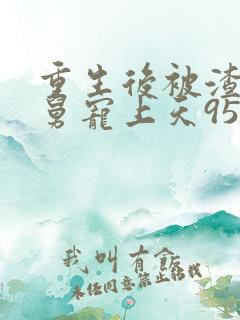 重生後被渣
舅寵上天95
我叫有飯
未经同意禁止转载